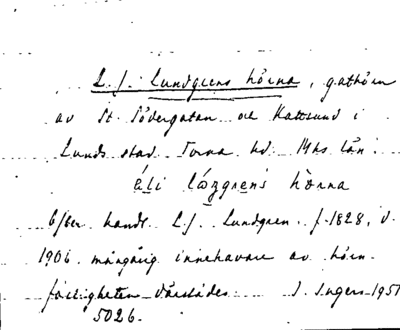 L. J. Lundgrens hörna, gathörn
av St. Södergatan och Kattsund i
Lunds stad. Torna hd. Mhs län.
áli lózgrens hö̀rna
Efter handl. L. J. Lundgren. f. 1828, d.
1906. mångårig innehavare av hörn-
fastigheten därstädes. I. Ingers 1951
5026.